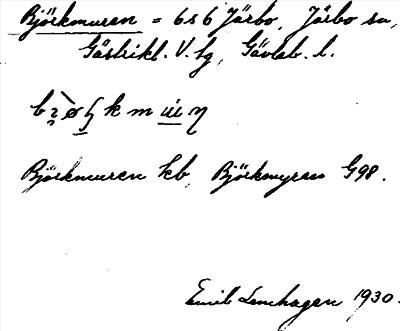 Björkmuren = 6s6 Järbo, Järbo sn,
Gästrikl. V. tg, Gävleb. l.
Björkmuren kb, Björkmyran G98.
Emil Lenhagen 1930.